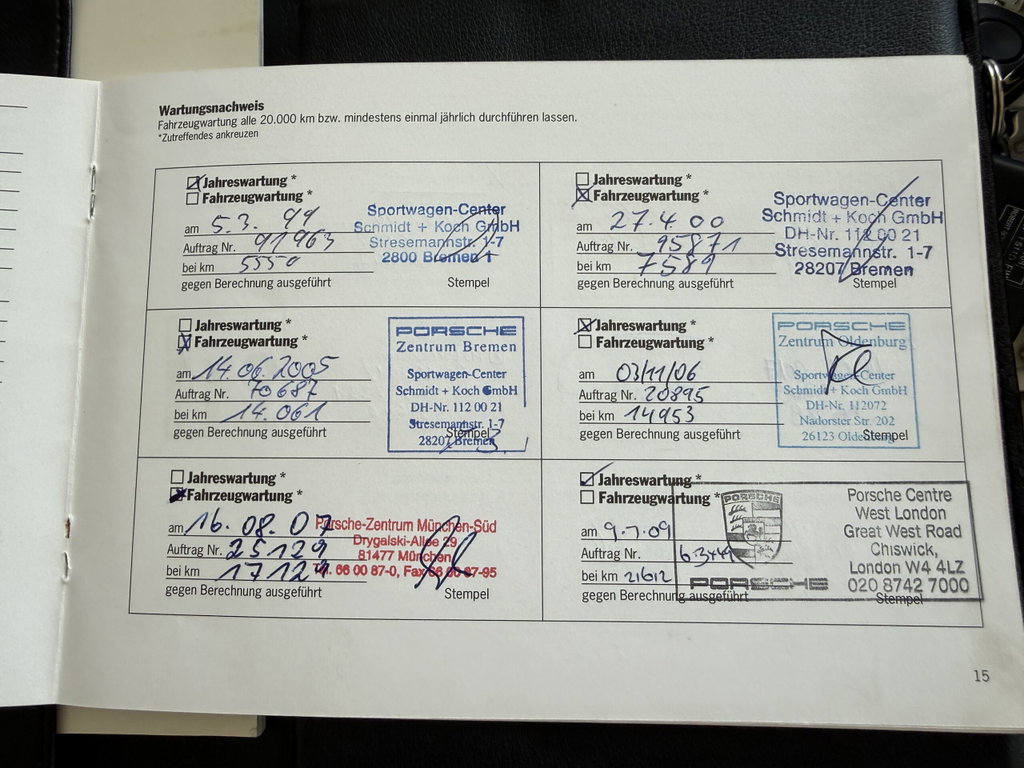 Wartungsnachweis
Fahrzeugwartung alle 20.000 km bzw. mindestens einmal jährlich durchführen lassen.
*Zutreffendes ankreuzen
Jahreswartung *
Fahrzeugwartung *
am 5.3.99
Auftrag Nr. 91963
bei km 5550
gegen Berechnung ausgeführt
Stempel
Sportwagen-Center
Schmidt + Koch GmbH
Stresemannstr. 1-7
2800 Bremen 1
Jahreswartung *
Fahrzeugwartung *
am 27.4.00
Auftrag Nr. 95871
bei km 7589
gegen Berechnung ausgeführt
Stempel
Sportwagen-Center
Schmidt + Koch GmbH
DH-Nr. 112 00 21
Stresemannstr. 1-7
28207 Bremen
Jahreswartung *
Fahrzeugwartung *
am 14.06.2005
Auftrag Nr. 70687
bei km 14.061
gegen Berechnung ausgeführt
Stempel
PORSCHE
Zentrum Bremen
Sportwagen-Center
Schmidt + Koch GmbH
DH-Nr. 112 00 21
Stresemannstr. 1-7
28207 Bremen
Jahreswartung *
Fahrzeugwartung *
am 03/11/06
Auftrag Nr. 20895
bei km 14953
gegen Berechnung ausgeführt
Stempel
PORSCHE
Zentrum Oldenburg
Sportwagen-Center
Schmidt + Koch GmbH
DH-Nr. 112072
Nadorster Str. 202
26123 Oldenburg
Jahreswartung *
Fahrzeugwartung *
am 16.08.07
Auftrag Nr. 25129
bei km 17129
gegen Berechnung ausgeführt
Stempel
Porsche-Zentrum München-Süd
Drygalski-Allee 29
81477 München
Tel. 66 00 87-0, Fax 66 00 87-95
Jahreswartung *
Fahrzeugwartung *
am 9.7.09
Auftrag Nr.
bei km 21612
gegen Berechnung ausgeführt
Stempel
PORSCHE
PORSCHE
Porsche Centre
West London
Great West Road
Chiswick,
London W4 4LZ
020 8742 7000
15